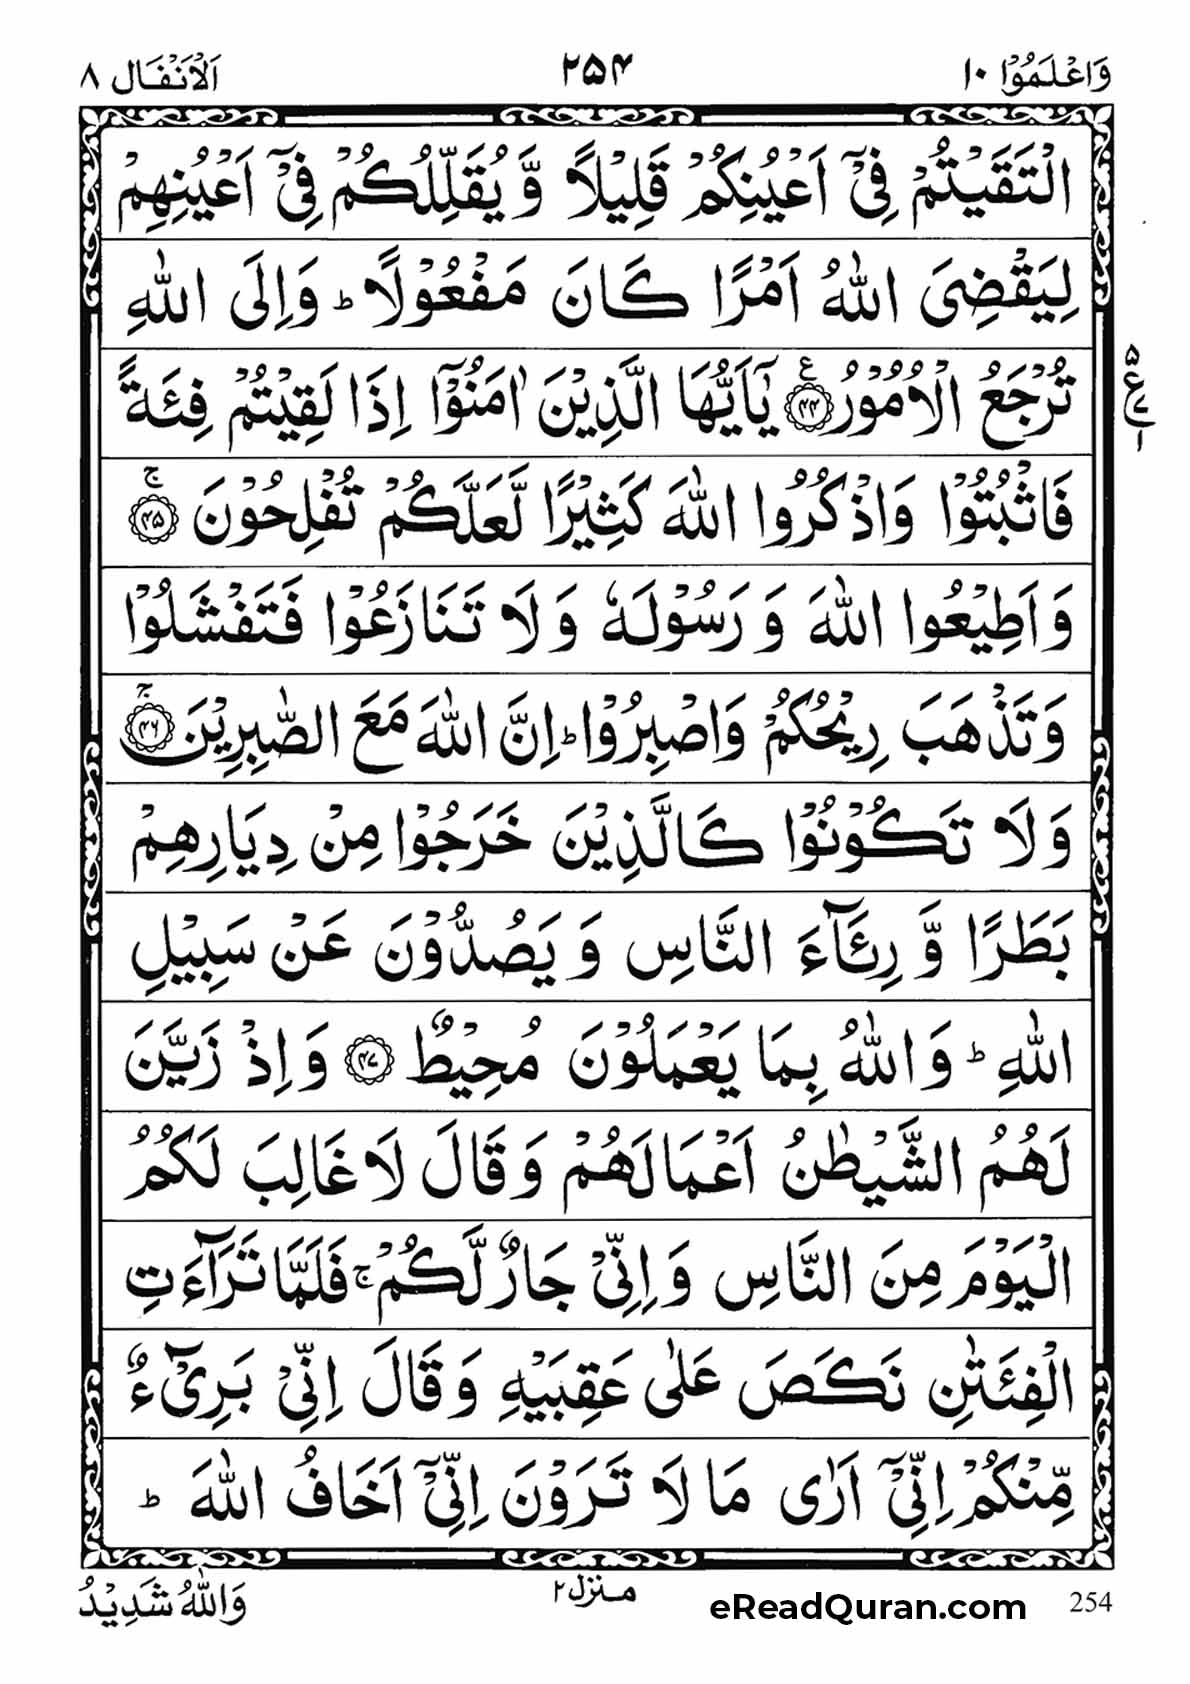 وَاعْلَمُوْٓا ١٠ ٢٥٤ اَلْاَنْفَال ٨
الْتَقَيْتُمْ فِيْٓ اَعْيُنِكُمْ قَلِيْلًا وَّ يُقَلِّلُكُمْ فِيْٓ اَعْيُنِهِمْ
لِيَقْضِيَ اللّٰهُ اَمْرًا كَانَ مَفْعُوْلًا ؕ وَاِلَى اللّٰهِ
تُرْجَعُ الْاُمُوْرُ ﴿٤٤﴾ ع يٰٓاَيُّهَا الَّذِيْنَ اٰمَنُوْٓا اِذَا لَقِيْتُمْ فِئَةً
٥ ع ١
فَاثْبُتُوْا وَاذْكُرُوا اللّٰهَ كَثِيْرًا لَّعَلَّكُمْ تُفْلِحُوْنَ ﴿٤٥﴾ ۚ
وَاَطِيْعُوا اللّٰهَ وَ رَسُوْلَهٗ وَ لَا تَنَازَعُوْا فَتَفْشَلُوْا
وَتَذْهَبَ رِيْحُكُمْ وَاصْبِرُوْا ؕ اِنَّ اللّٰهَ مَعَ الصّٰبِرِيْنَ ﴿٤٦﴾ ۚ
وَلَا تَكُوْنُوْا كَالَّذِيْنَ خَرَجُوْا مِنْ دِيَارِهِمْ
بَطَرًا وَّ رِئَآءَ النَّاسِ وَ يَصُدُّوْنَ عَنْ سَبِيْلِ
اللّٰهِ ؕ وَاللّٰهُ بِمَا يَعْمَلُوْنَ مُحِيْطٌ ﴿٤٧﴾ وَاِذْ زَيَّنَ
لَهُمُ الشَّيْطٰنُ اَعْمَالَهُمْ وَ قَالَ لَا غَالِبَ لَكُمُ
الْيَوْمَ مِنَ النَّاسِ وَاِنِّيْ جَارٌ لَّكُمْ ۚ فَلَمَّا تَرَآءَتِ
الْفِئَتٰنِ نَكَصَ عَلٰى عَقِبَيْهِ وَ قَالَ اِنِّيْ بَرِيْٓءٌ
مِّنْكُمْ اِنِّيْٓ اَرٰى مَا لَا تَرَوْنَ اِنِّيْٓ اَخَافُ اللّٰهَ ؕ
وَاللّٰهُ شَدِيْدُ
منزل ٢
eReadQuran.com 254